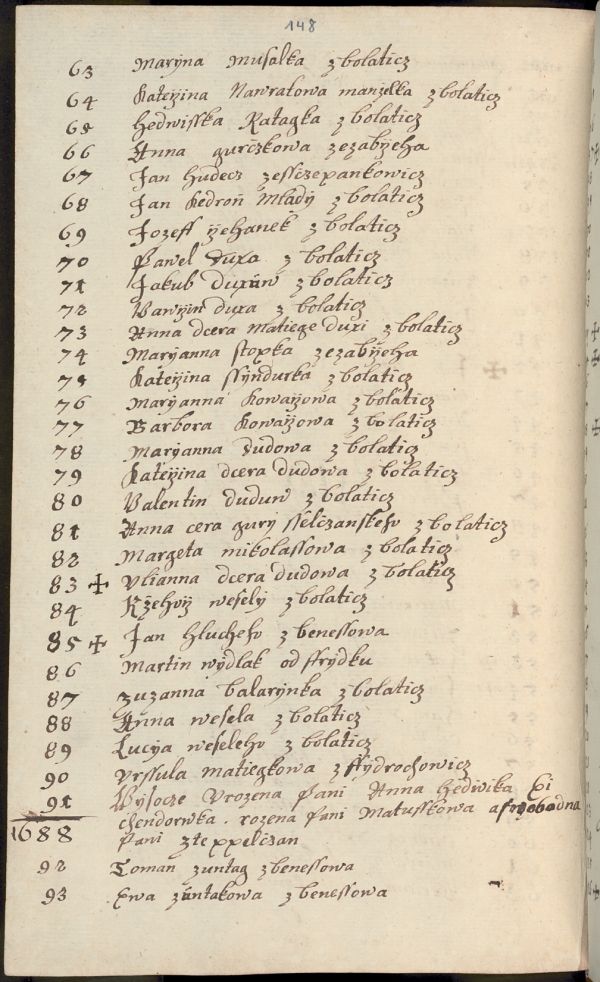 148
63 Maryna Musalka z bolaticz
64 Kateřina Nawratowa manželka z bolaticz
65 Hedwisska Ratagka z bolaticz
66 Anna gurczkowa zezabÿeha
67 Jan hudecz zessczepankowicz
68 Jan Kedroň Mladÿ z bolaticz
69 Jozeff ÿehanek z bolaticz
70 Pawel duxa z bolaticz
71 Jakub duxůw z bolaticz
72 duxa z bolaticz
73 Anna dcera Matiege duxi z bolaticz
74 Maryanna stopka zezabÿeha
75 Kateřina z bolaticz
76 Maryanna Kowařowa z bolaticz
77 Barbora Kowařowa z bolaticz
78 Maryanna dudowa z bolaticz
79 Kateřina dcera dudowa z bolaticz
80 Valentin duduw z bolaticz
81 Anna cera gury z bolaticz
82 Margeta mikolassowa z bolaticz
83 + Ulianna dcera dudowa z bolaticz
84 wesely z bolaticz
85 + Jan hlucheho z benessowa
86 Martin wydlak od ffrydku
87 zuzanna balarynka z bolaticz
88 Anna wesela z bolaticz
89 Lucya weseleho z bolaticz
90 Vrssula matiegkowa z
91 Wysocze Vrozena Pani Anna Hedwika Ei
chendorwka . rozena Pani Matusskowa a swobodna
1688 Pani z
92 Toman zuntag z benessowa
93 Ewa zuntakowa z benessowa